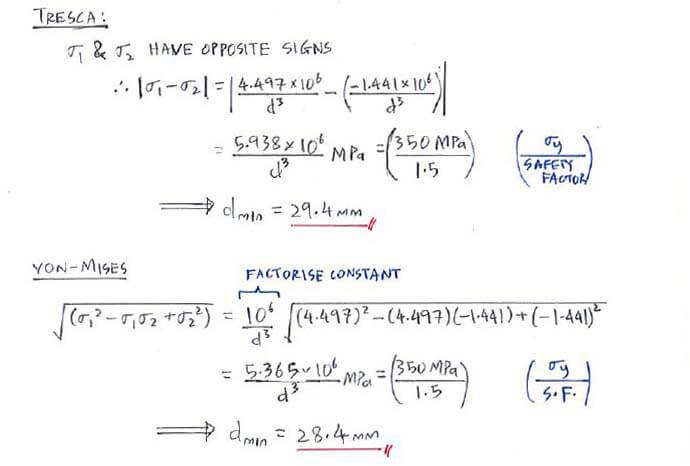 TRESCA:
σ₁ & σ₂ HAVE OPPOSITE SIGNS
∴ |σ₁-σ₂| = |4.497×10⁶/d³ - (-1.441×10⁶/d³)|
= 5.938×10⁶/d³ MPa = (350 MPa/1.5) (σy/SAFETY FACTOR)
⟹ dmin = 29.4 MM
VON-MISES FACTORISE CONSTANT
√(σ₁² - σ₁σ₂ + σ₂²) = 10⁶/d³ √(4.497)² - (4.497)(-1.441) + (-1.441)²
= 5.365×10⁶/d³ MPa = (350 MPa/1.5) (σy/S.F.)
⟹ dmin = 28.4 MM